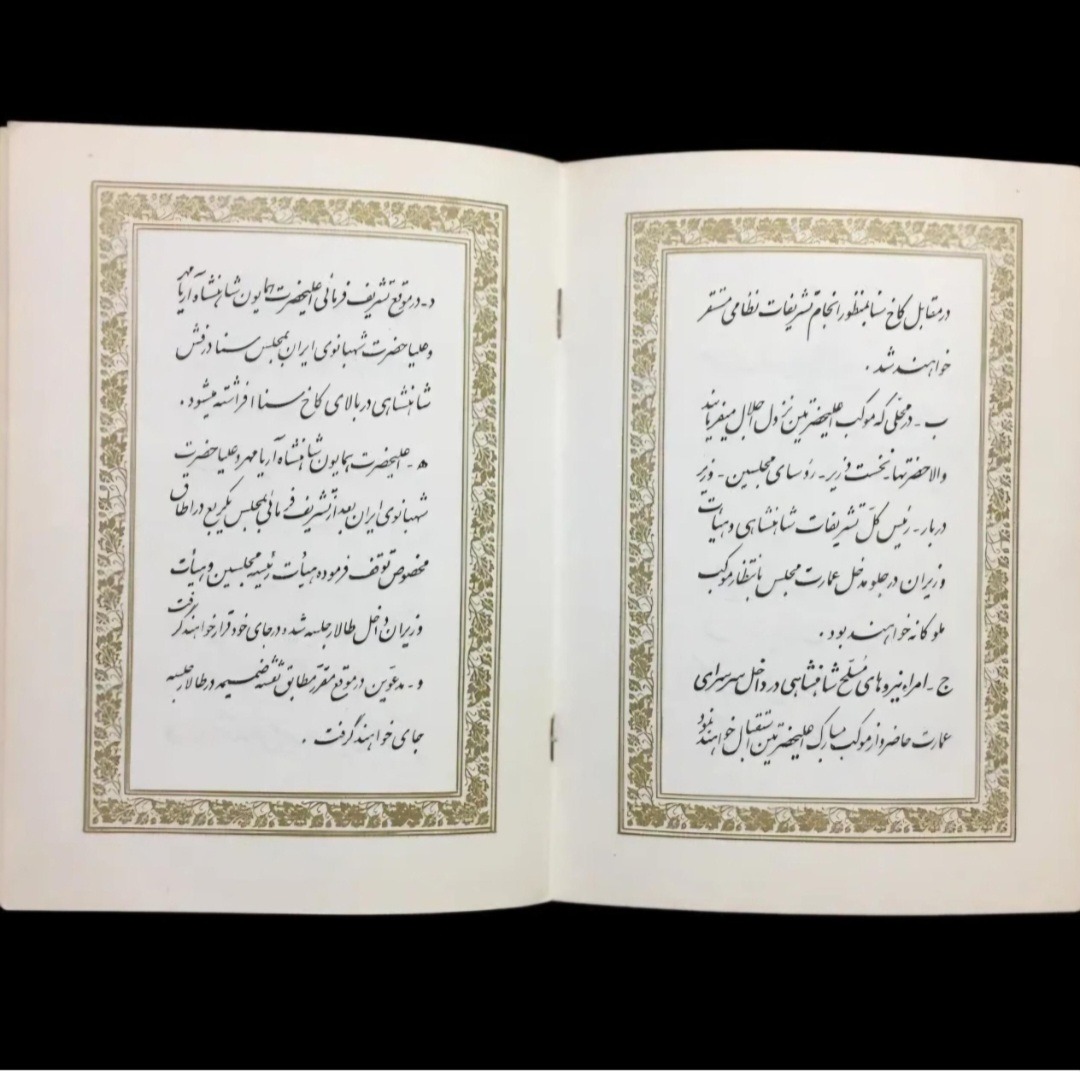 در مقابل کاخ سنا بمنظور انجام تشریفات نظامی مستقر
خواهند شد .
ب - در محلی که موکب اعلیحضرتین نزول اجلال میفرمایند
والاحضرتها - نخست وزیر - رؤسای مجلسین - وزیر
دربار - رئیس کلّ تشریفات شاهنشاهی و هیأت
وزیران در جلو مدخل عمارت مجلس بانتظار موکب
ملوکانه خواهند بود .
ج - امراء نیروهای مُسلّح شاهنشاهی در داخل سرسرای
عمارت حاضر و از موکب مبارک اعلیحضرتین استقبال خواهند نمود
د - در موقع تشریف فرمائی اعلیحضرت همایون شاهنشاه آریامهر
و علیاحضرت شهبانوی ایران بمجلس سنا درفش
شاهنشاهی در بالای کاخ سنا افراشته میشود .
ه - اعلیحضرت همایون شاهنشاه آریامهر و علیاحضرت
شهبانوی ایران بعد از تشریف فرمائی بمجلس یکربع در اطاق
مخصوص توقف فرموده هیأت رئیسه مجلسین و هیأت
وزیران داخل طالار جلسه شده در جای خود قرار خواهند گرفت
و - مدعوّین در موقع مقرّر مطابق نقشه ضمیمه در طالار جلسه
جای خواهند گرفت .